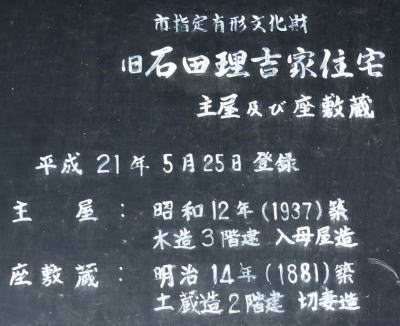 市指定有形文化財
旧石田理吉家住宅
主屋及び座敷蔵
平成 21年 5月25日 登録
主屋: 昭和12年(1937)築
木造3階建 入母屋造
座敷蔵: 明治14年(1881)築
土蔵造2階建 切妻造